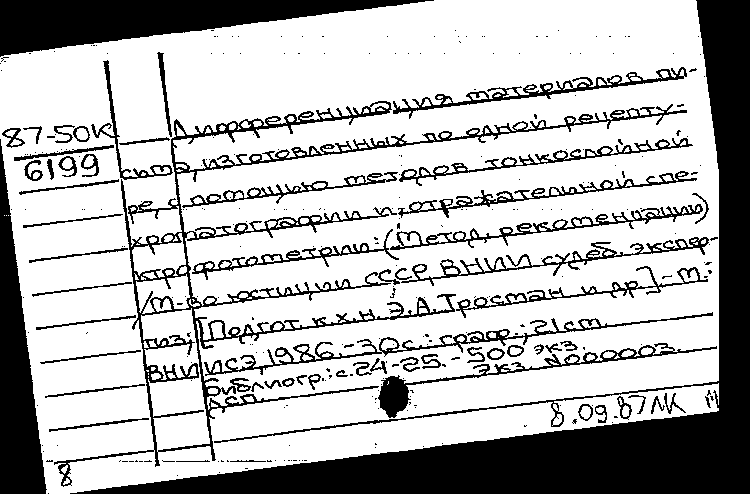 87-50К
6199
Дифференциация материалов пи-
сьма, изготовленных по одной рецепту-
ре, с помощью методов тонкослойной
хроматографии и отражательной спе-
ктрофотометрии: (Метод. рекомендации)
/М-во юстиции СССР, ВНИИ судеб. экспер-
тиз; [Подгот. к.х.н. Э.А. Тросман и др.].-М.:
ВНИИСЭ, 1986.-30с.: граф.; 21см.
Библиогр.: с.24-25.-500 экз.
ДСП. Экз. N000003.
8.09.87 ЛК
8